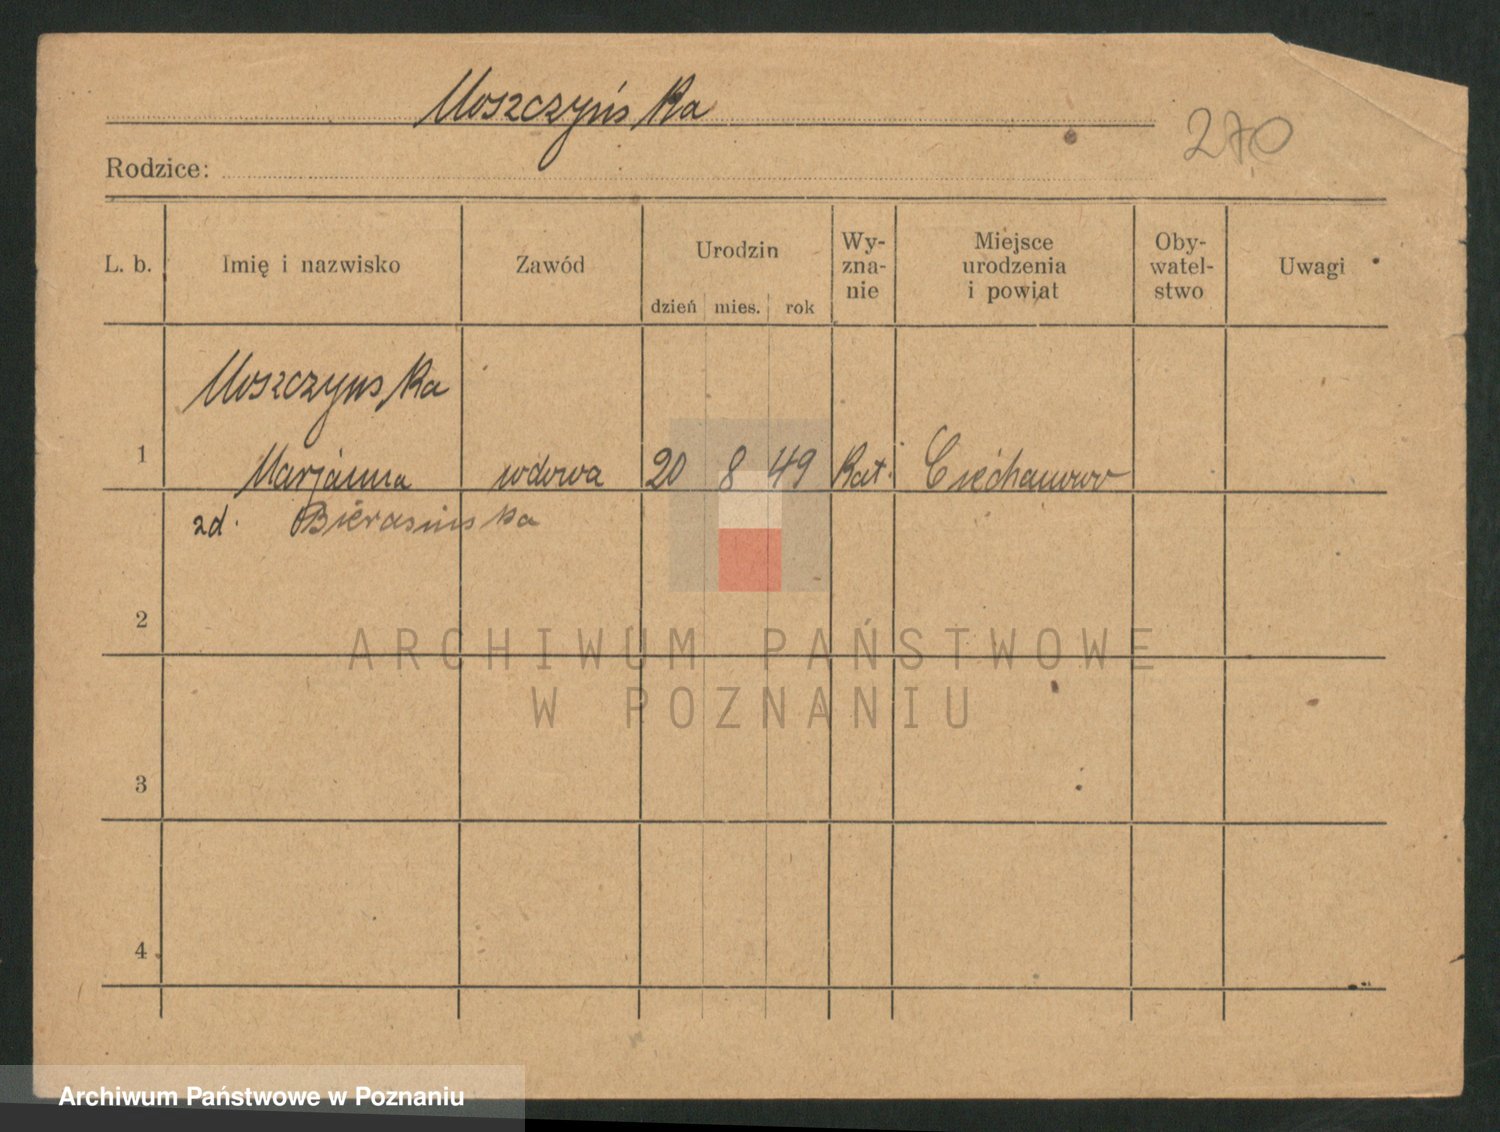 Moszczyńska
270
Rodzice:
L. b. Imię i nazwisko Zawód Urodzin dzień mies. rok Wy-zna-nie Miejsce urodzenia i powiat Oby-watel-stwo Uwagi
Moszczynska
1 Marjanna wdowa 20 8 49 Kat. Ciechanowo
zd. Bierasinska
2
ARCHIWUM PAŃSTWOWE
W POZNANIU
3
4
Archiwum Państwowe w Poznaniu